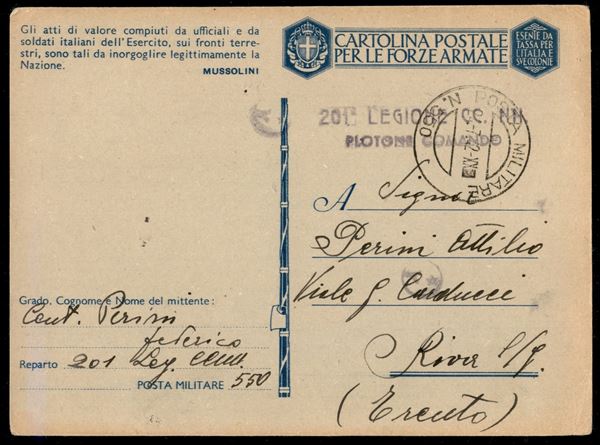 Gli atti di valore compiuti da ufficiali e da
soldati italiani dell'Esercito, sui fronti terre-
stri, sono tali da inorgoglire legittimamente la
Nazione.
MUSSOLINI
CARTOLINA POSTALE
PER LE FORZE ARMATE
ESENTE DA
TASSA PER
L'ITALIA E
SVE COLONIE
201ª LEGIONE CC. NN.
PLOTONE COMANDO
POSTA MILITARE N. 550
A Signor
Perini Attilio
Viale G. Carducci
Riva s/G.
(Trento)
Grado, Cognome e Nome del mittente:
Cent. Perini
federico
Reparto 201 Leg. CCNN.
POSTA MILITARE 550